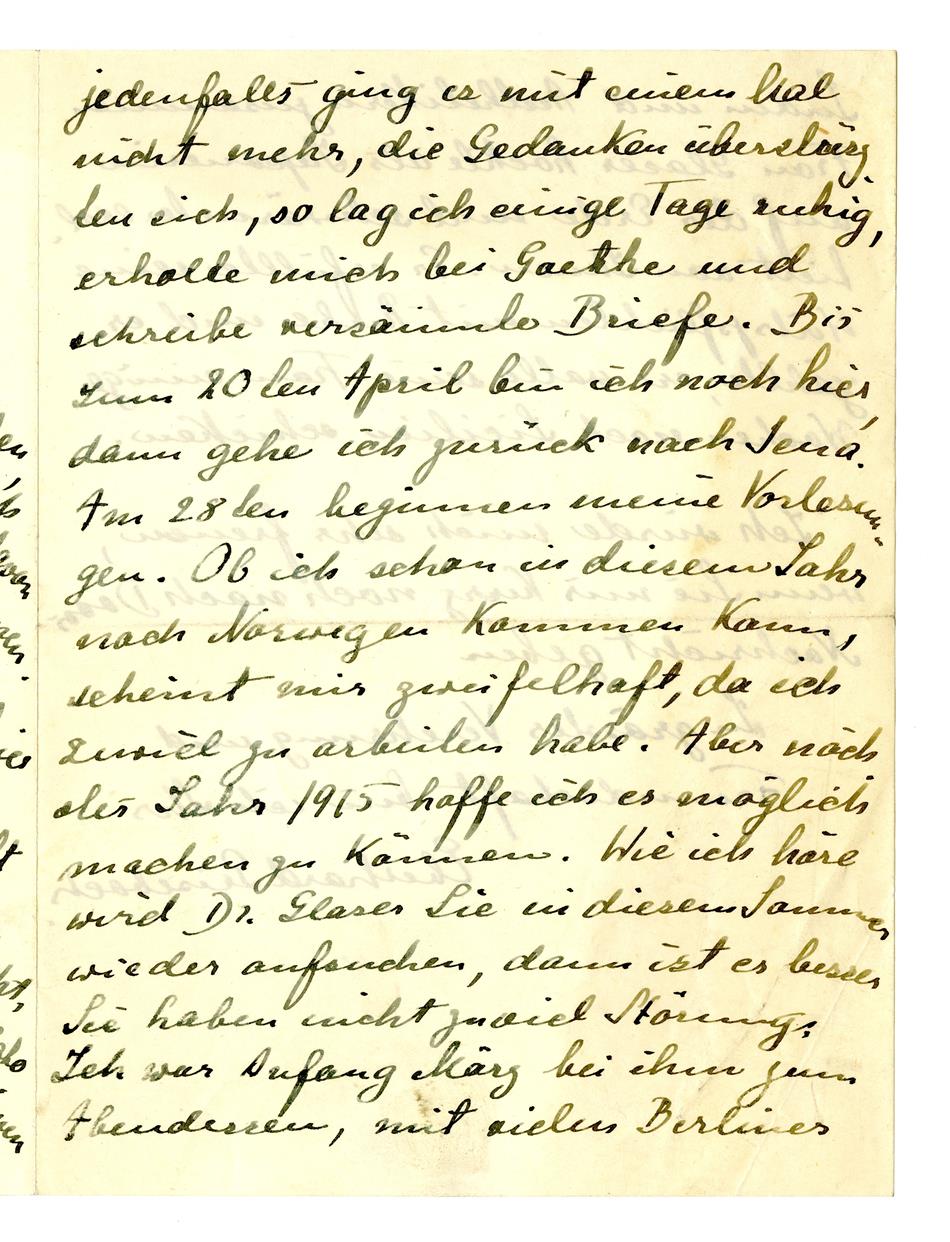 jedenfalls ging es mit einem Mal
nicht mehr, die Gedanken überstürz
ten sich, so lag ich einige Tage ruhig,
erholte mich bei Goethe und
schreibe versäumte Briefe. Bis
zum 20ten April bin ich noch hier,
dann gehe ich zurück nach Jena.
Am 28ten beginnen meine Vorlesun-
gen. Ob ich schon in diesem Jahr
nach Norwegen kommen kann,
scheint mir zweifelhaft, da ich
zuviel zu arbeiten habe. Aber nach
des Jahr 1915 hoffe ich es möglich
machen zu können. Wie ich höre
wird Dr. Glaser Sie in diesem Sommer
wieder aufsuchen, dann ist es besser
Sie haben nicht zuviel Störung.
Ich war Anfang März bei ihm zum
Abendessen, mit vielen Berliner